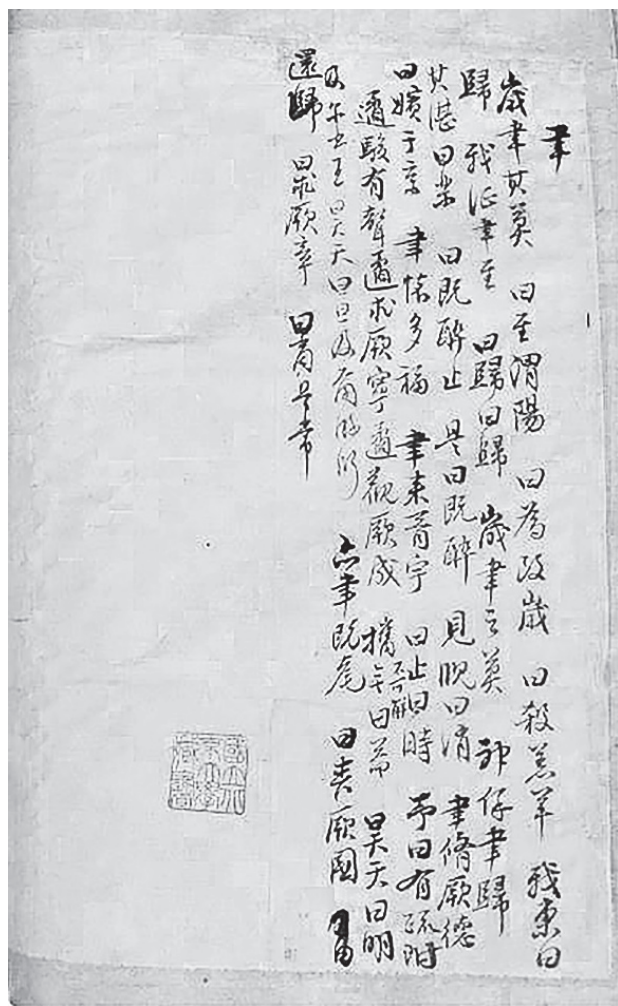 聿
歲聿其莫 曰至渭陽 曰為改歲 曰殺羔羊 我東曰
歸 我征聿至 曰歸曰歸 歲聿云莫 神保聿歸
其湛曰樂 曰既醉止 是曰既醉 見晛曰消 聿脩厥德
曰嬪于京 聿懷多福 聿來胥宇 曰止曰時 予曰有疏附
遹駿有聲遹求厥寧遹觀厥成 攜无曰益 昊天曰明
及尔出王昊天曰旦及爾游衍 亦聿既耄 曰喪厥國
還歸 曰求厥章 曰商是常